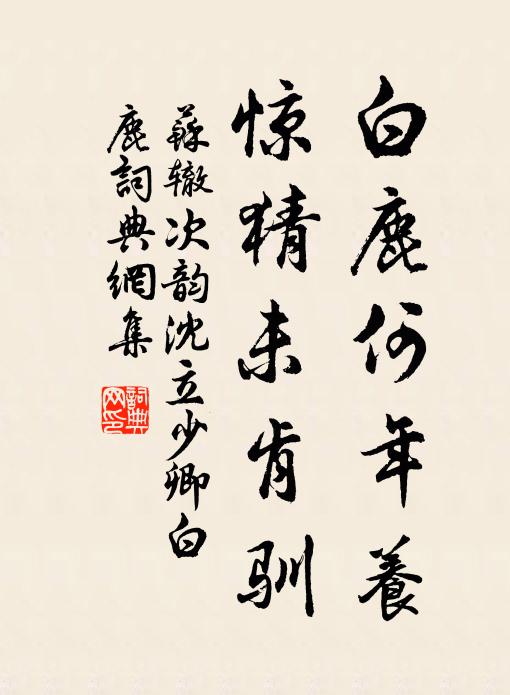 白鹿何年養
惊猜未肯馴
蘇辙次韵沈立少卿白
鹿詞典網集
詞典
网印